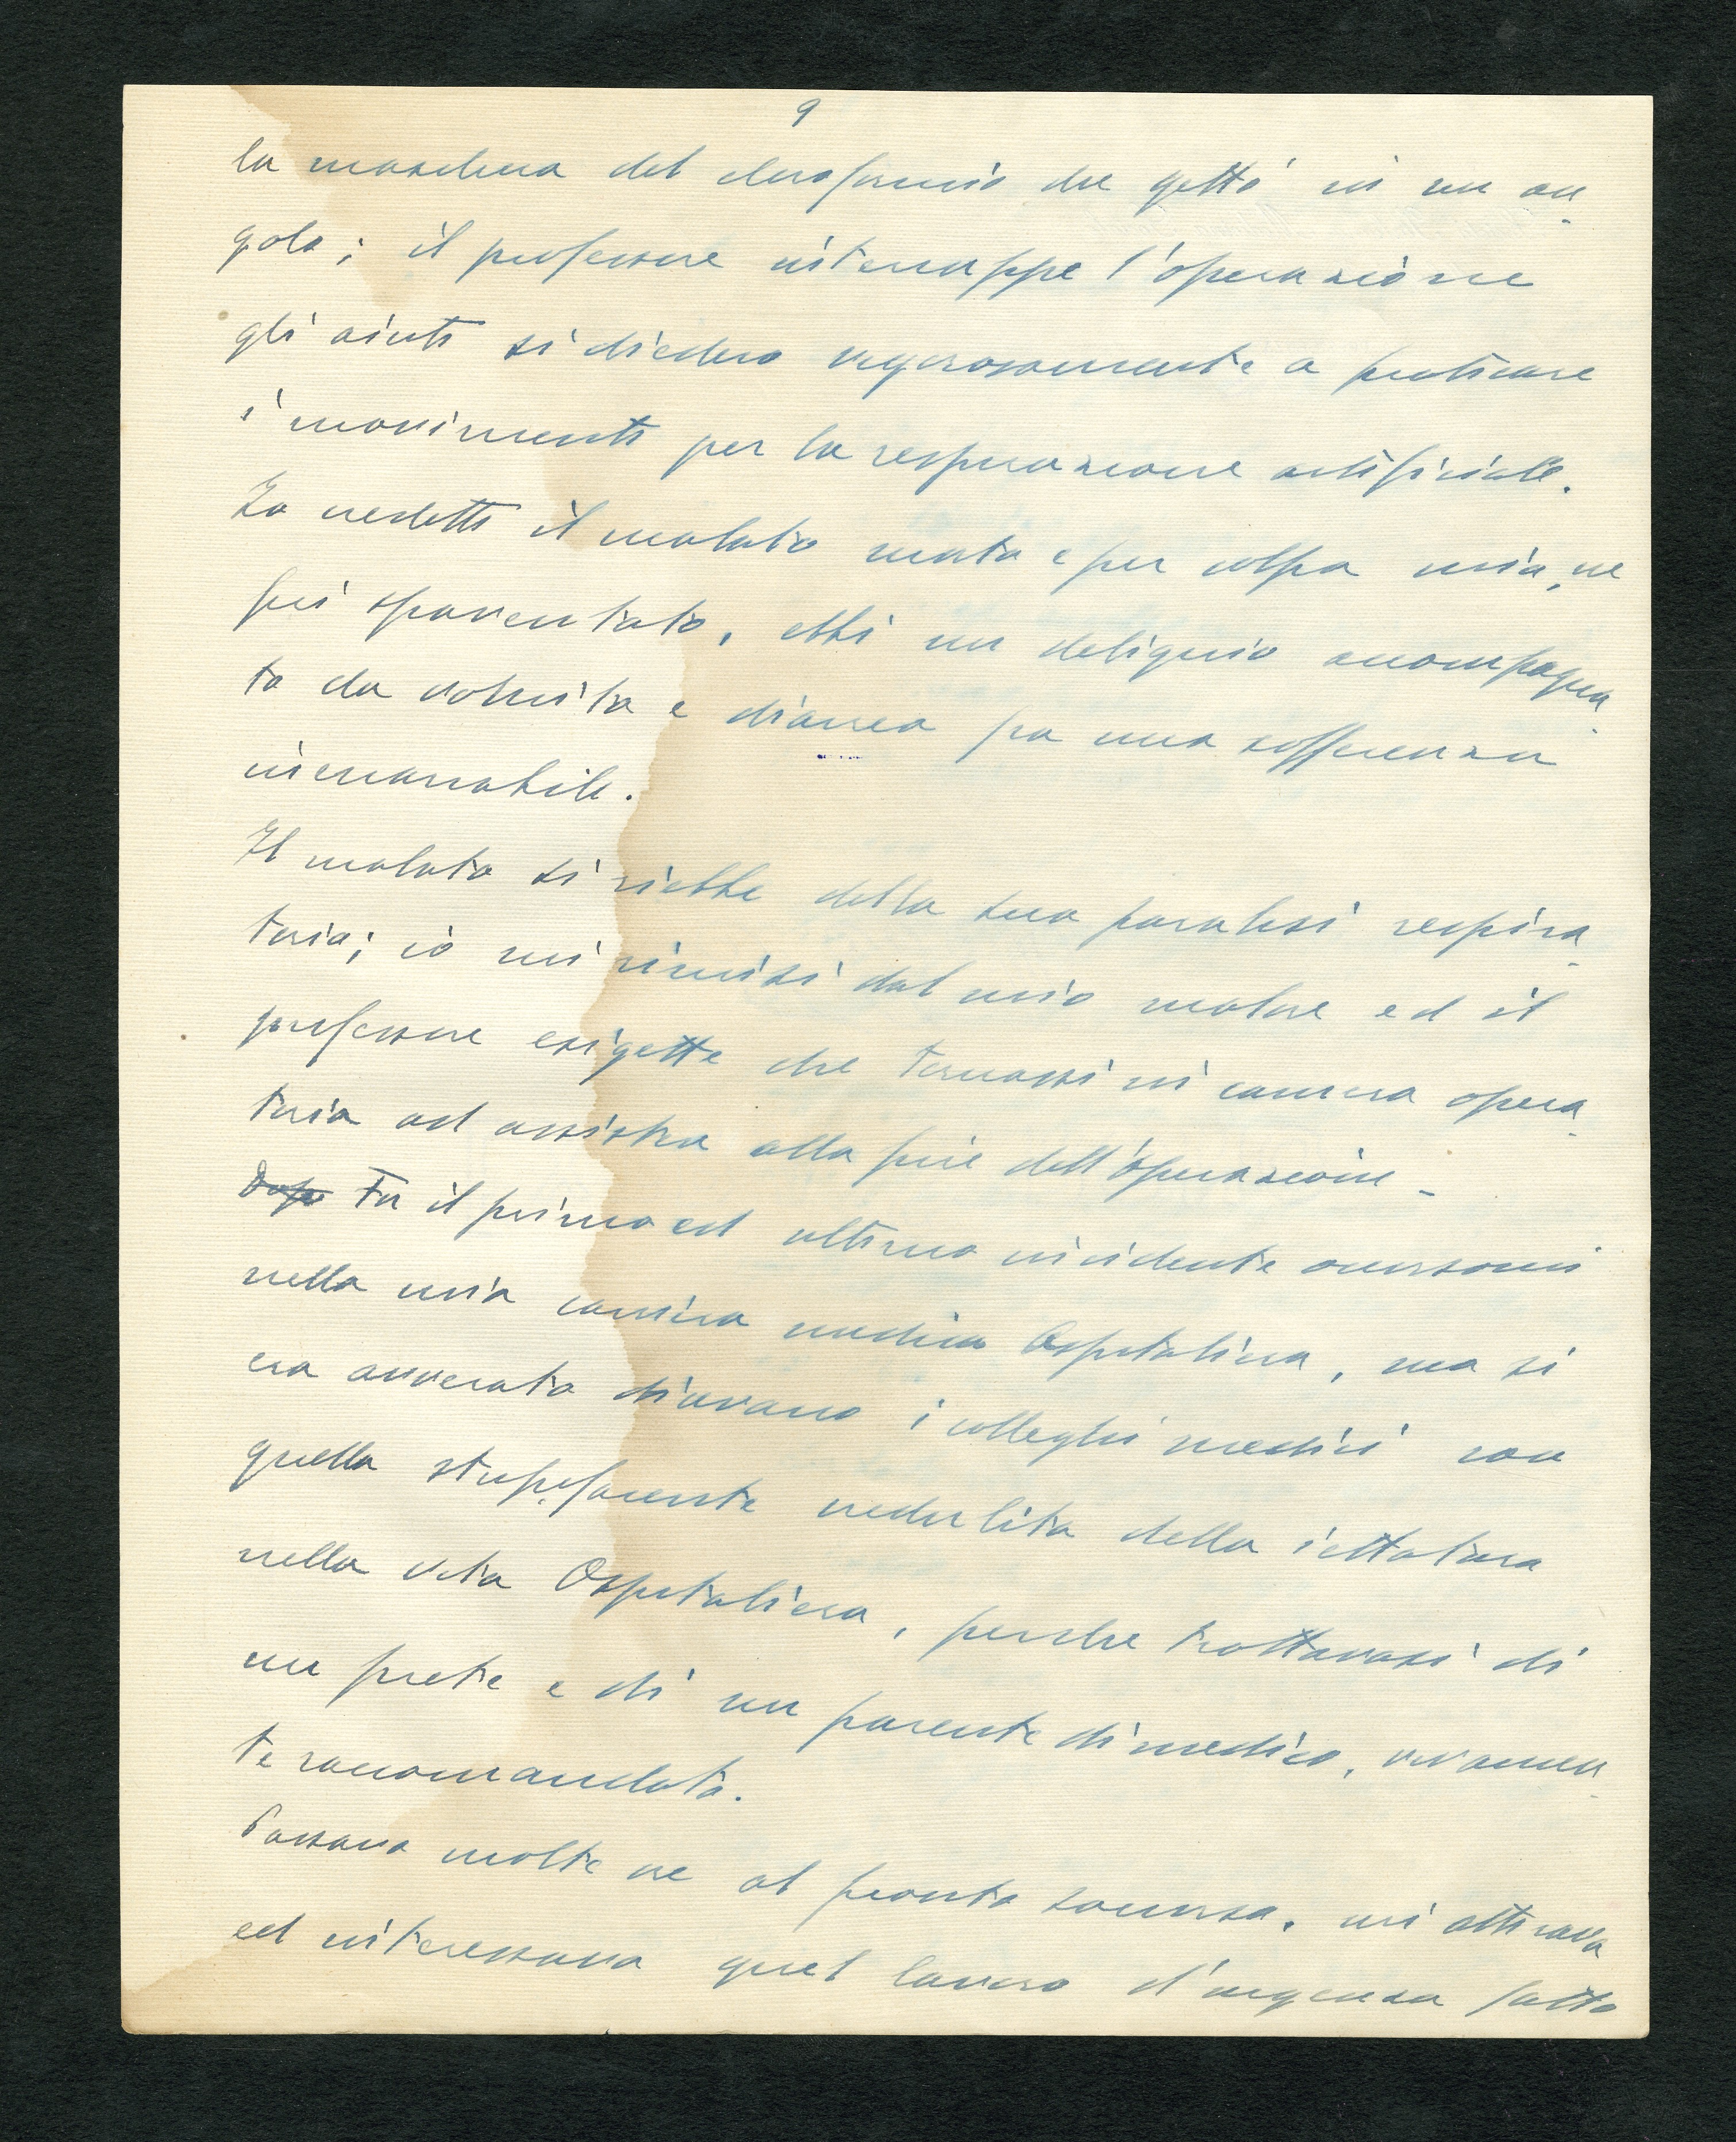 9
la maschera del cloroformio che gettò in un an-
golo; il professore interruppe l'operazione
gli aiuti si diedero vigorosamente a praticare
i movimenti per la respirazione artificiale.
Io credetti il malato morto e per colpa mia, ne
fui spaventato, ebbi un deliquio accompagna-
to da vomito e diarrea fra una sofferenza
inenarrabile.
Il malato si riebbe della sua paralisi respira-
toria; io mi rimisi dal mio malore ed il
professore esigette che tornassi in camera opera-
toria ad assistere alla fine dell'operazione -
Dopo Fu il primo ed ultimo incidente occorsomi
nella mia carriera medica Ospitaliera, ma si
era avverato dicevano i colleghi medici con
quella stupefacente credulità della iettatura
nella vita Ospitaliera, perchè trattavasi di
un prete e di un parente di medico, vivamen-
te raccomandato.
Passavo molte ore al pronto soccorso, mi attirava
ed interessava quel lavoro d'urgenza fatto